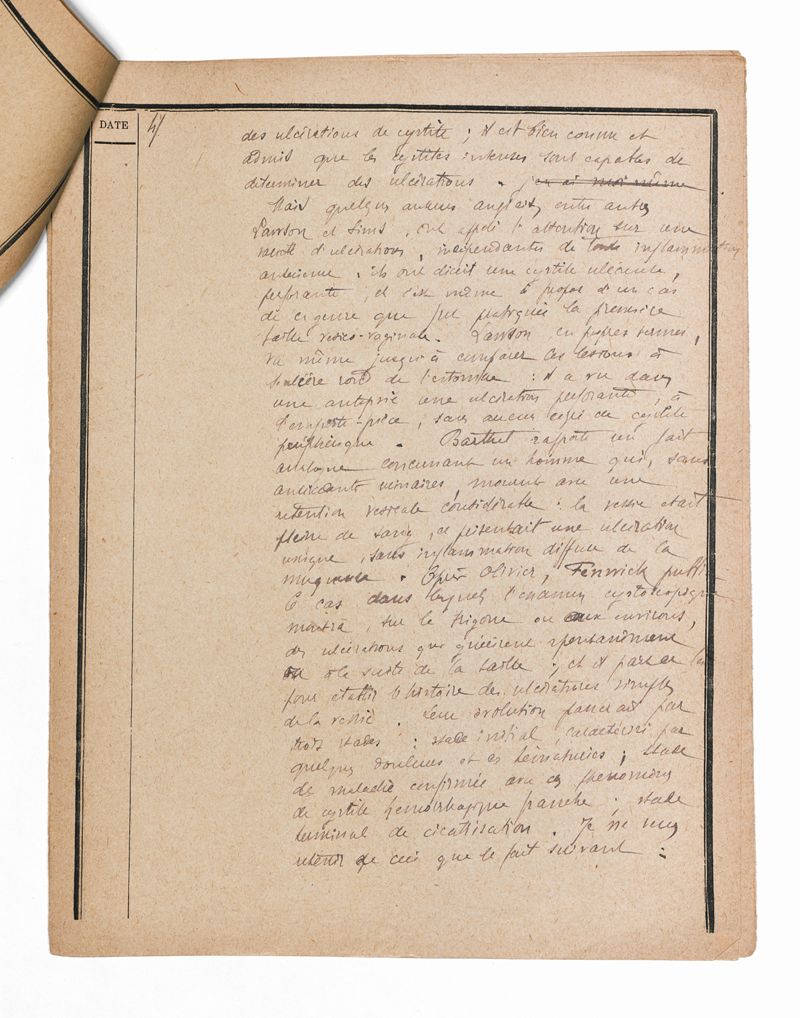 DATE
4/
des ulcérations de cystite ; il est bien connu et
admis que les cystites intenses sont capables de
déterminer des ulcérations . j'en ai moi même
Mais quelques auteurs anglais, entre autres
Lawson et Sims , ont appelé l'attention sur une
variété d'ulcérations , indépendantes de toute inflammation
antérieure . ils ont décrit une cystite ulcéreuse ,
perforante , et c'est même à propos d'un cas
de ce genre que fut pratiquée la première
taille vésico-vaginale . Lawson en propres termes ,
va même jusqu'à comparer ces lésions à
l'ulcère rond de l'estomac : il a vu dans
une autopsie une ulcération perforante, à
l'emporte-pièce , sans aucune de cystite
périphérique . Barthel rapporte un fait
analogue concernant un homme qui , sans
antécédents urinaires mourut avec une
rétention vésicale considérable : la vessie était
pleine de sang , et présentait une ulcération
unique , sans inflammation diffuse de la
muqueuse . Après Olivier , Fenwick publie
6 cas dans lesquels l'examen cystoscopique
montra , sur le trigone ou aux environs ,
des ulcérations qui guérirent spontanément
ou à la suite de la taille ; et il part de là
pour établir l'histoire des ulcérations simples
de la vessie . Leur évolution passerait par
trois stades : stade initial , caractérisé par
quelques douleurs et des hématuries ; stade
de maladie confirmée avec des phénomènes
de cystite hémorrhagique franche ; stade
terminal de cicatrisation . Je ne veux
retenir de ceci que le fait suivant :